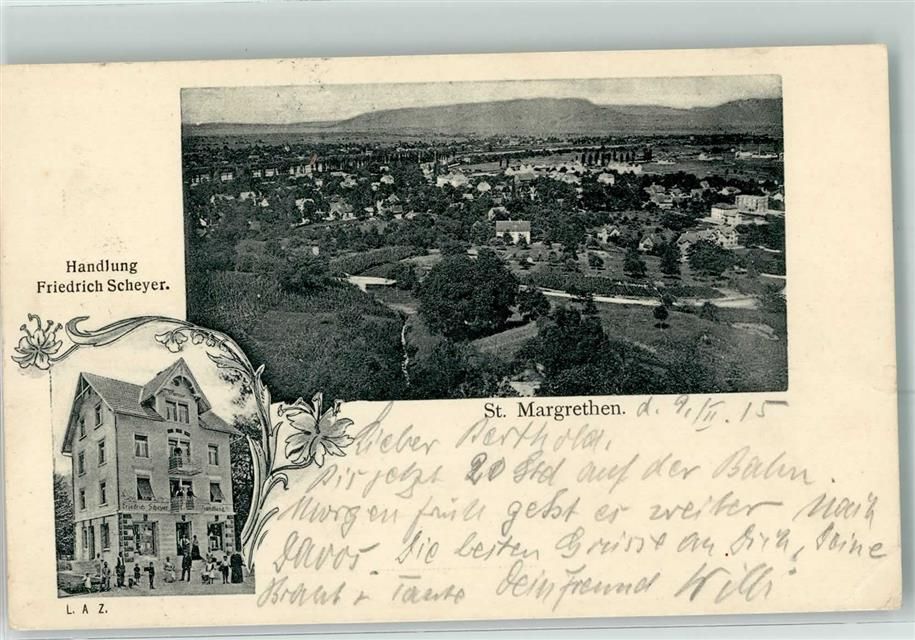 Handlung
Friedrich Scheyer.
St. Margrethen. d. 9./II. 15
Lieber Berthold.
Bis jetzt 20 Std auf der Bahn.
Morgen früh geht es weiter nach
Davos. Die besten Grüsse an Dich, Deine
Braut u. Tante Dein Freund Willi
Friedrich Scheyer, Handlung
L. A. Z.